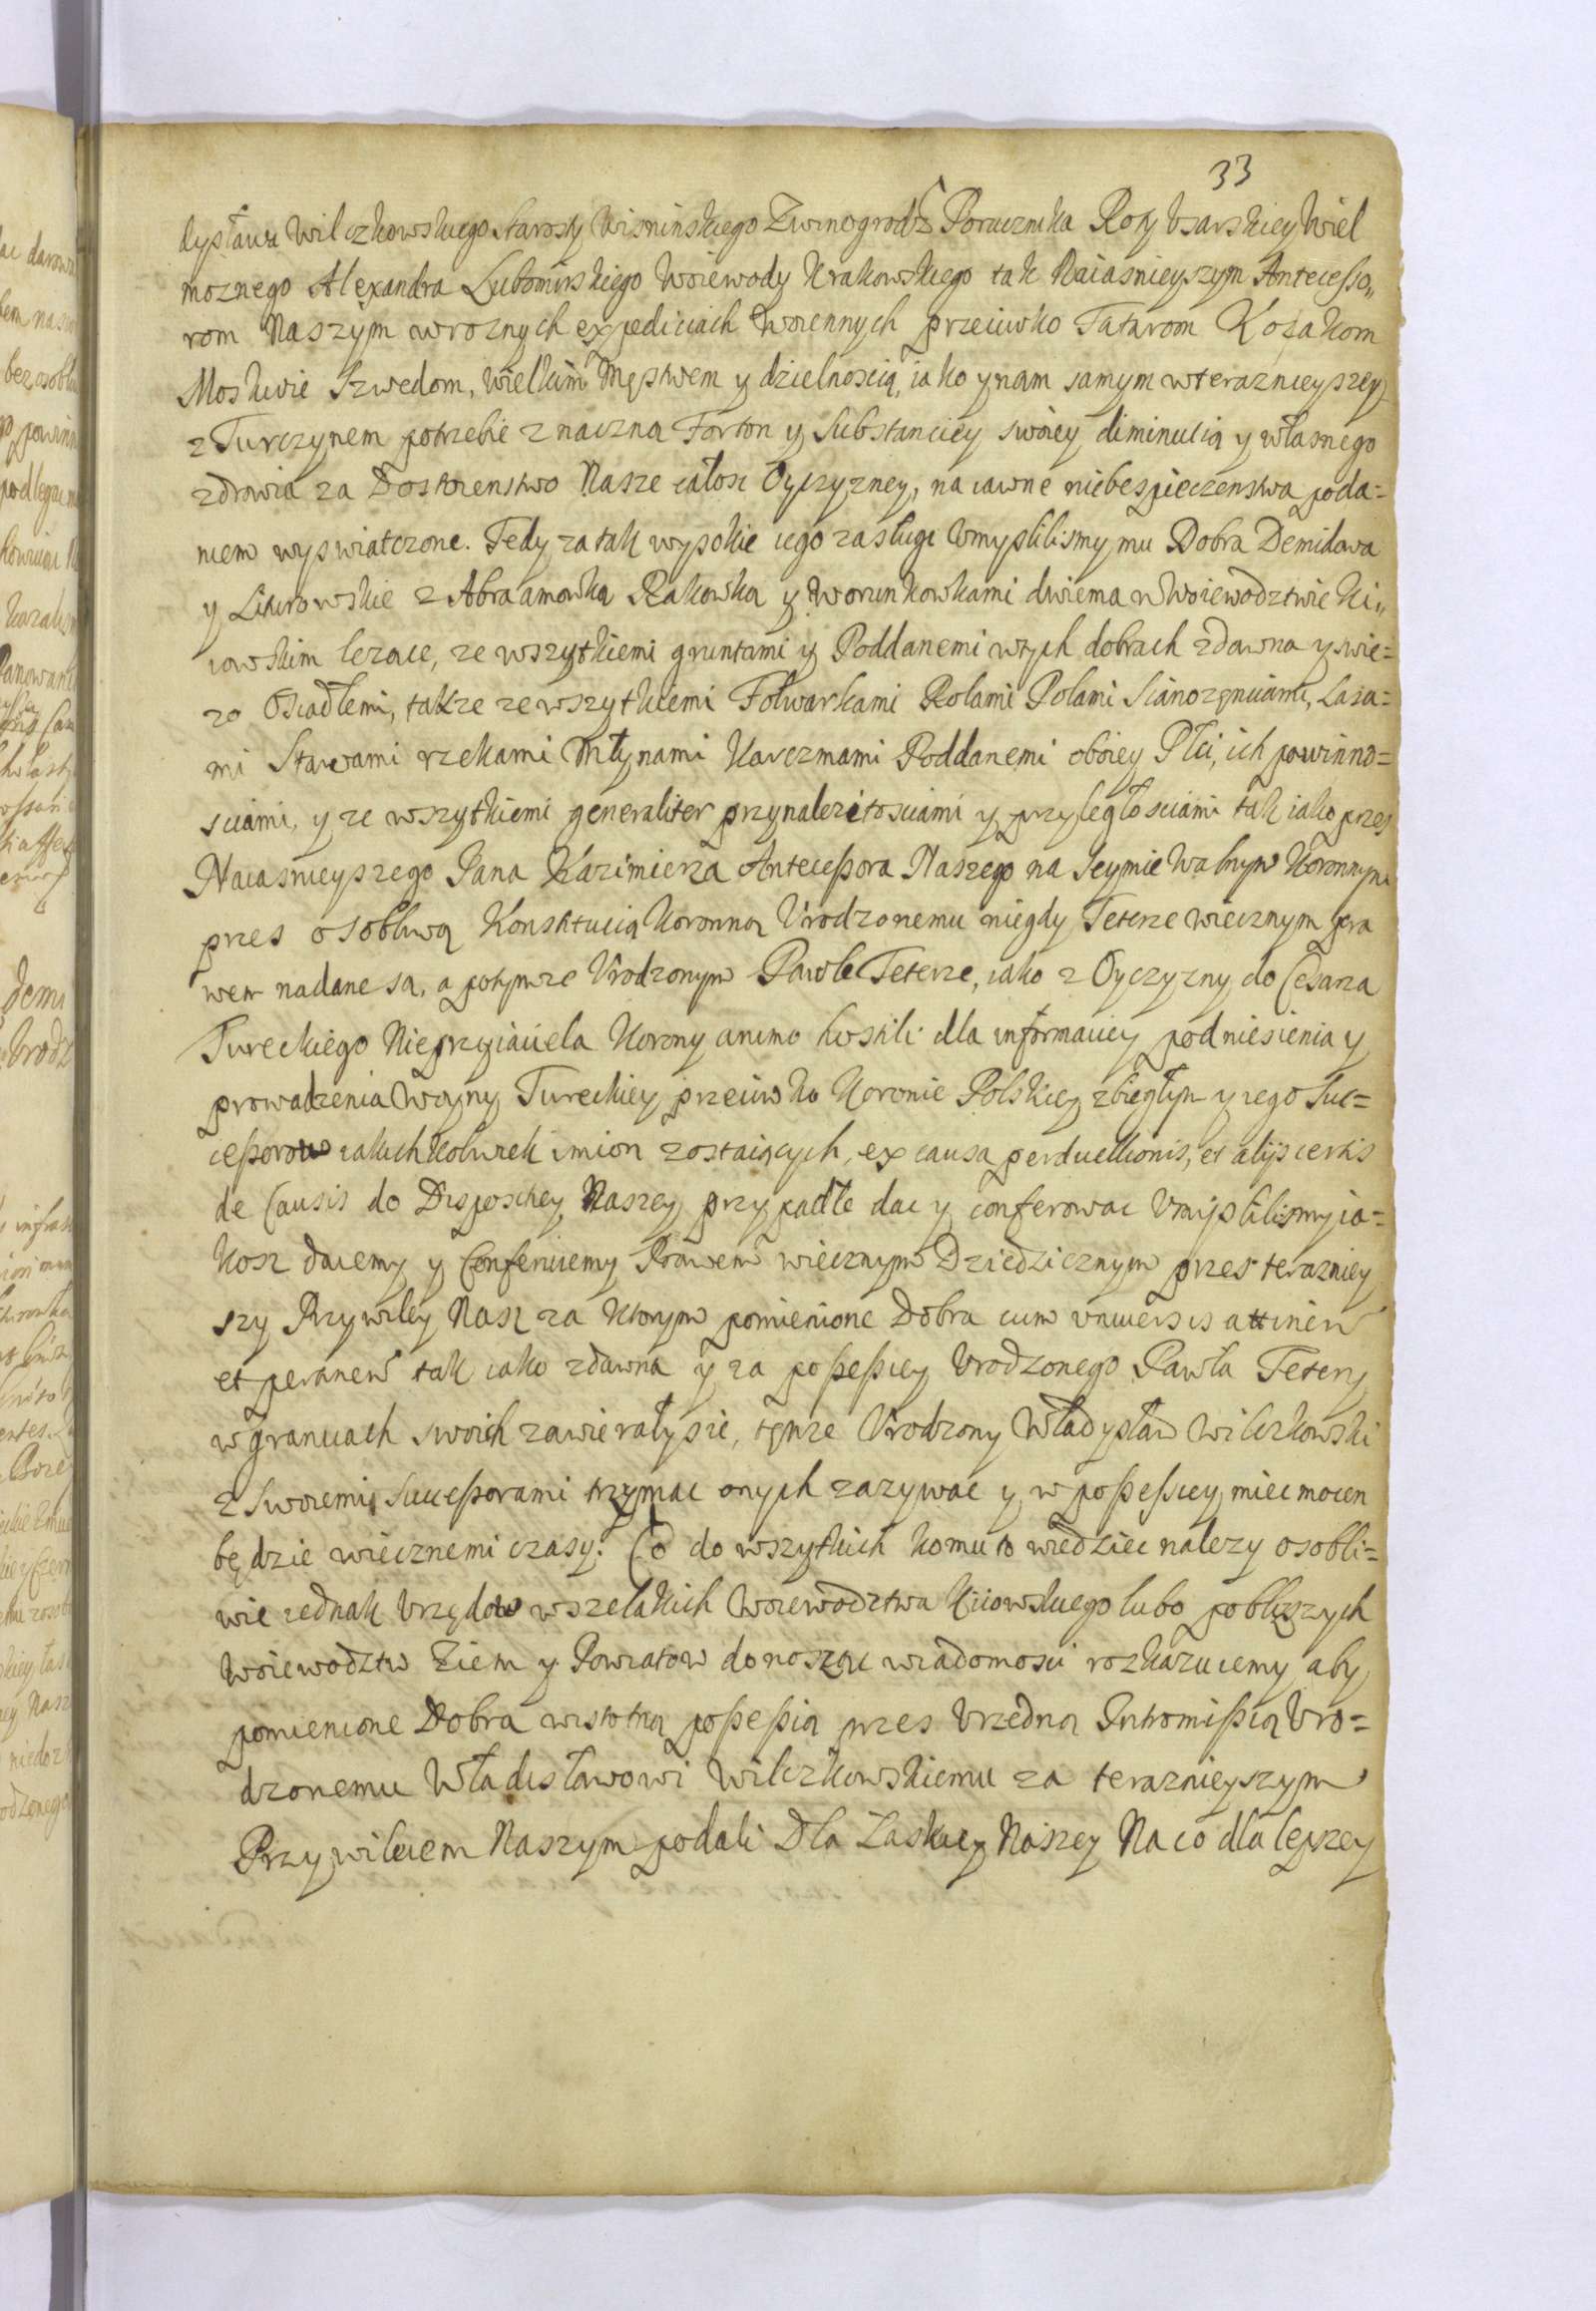 33
dysława Wilczkowskiego Starosty Wisnińskiego Zwinogrodz Porucznika Roty Vsarskiey Wiel
moznego Alexandra Lubomirskiego Woiewody Krakowskiego tak Naiasnieyszym Antecesso„
rom Naszym wroznych expediciach woiennych przeciwko Tatarom Kozakom
Moskwie Szwedom, wielkim Męstwem y dzielnoscią, iako y nam samym wteraznieyszey
z Turczynem potrzebie znaczną Forton y Substanciey swoiey diminutią y własnego
zdrowia za Dostoienstwo Nasze całosc Oyczyzney, na iawne niebespieczenstwa poda=
niem wyswiatczone. Tedy za tak wysokie iego zasługi Vmyslilismy mu Dobra Demidawa
y Litwowskie z Abraamowką Rakowką y Worunkowkami dwiema w Woiewodztwie Ki„
iowskim lezące, ze wszytkiemi gruntami y Poddanemi wtych dobrach zdawna y swie=
zo Osiadłemi, takze ze wszytkiemi Folwarkami Rolami Polami Sianozęnciami, Lasa=
mi Stawami rzekami Młynami Karczmami Poddanemi oboiey Płci, ich powinno=
sciami, y ze wszytkiemi generaliter przynalezitosciami y przyległosciami tak iako przes
Naiasnieyszego Pana Kazimierza Antecessora Naszego na Seymie Walnym Koronnym
przes osobliwą Konstitucią Koronną Vrodzonemu niegdy Teterze wiecznym pra
wem nadane są, a potym ze Vrodzonym Pawle Teterze, iako z Oyczyzny do Cesarza
Tureckiego Nieprzyiaciela Korony animo hostili dla informaciey podniesienia y
prowadzenia Woyny Tureckiey przeciwko Koronie Polskiey zbiegłym y iego Suc=
cessorow iakichkolwiek imion zostaiących, ex causa perduellionis, et alijs certis
de Causis do Disposiciey Naszey przypadłe dac y conferowac Vmyslilismy ia=
kosz daiemy y Conferuiemy Prawem wiecznym Dziedzicznym przes terazniey
szy Przywiley Nasz za ktorym pomienione Dobra cum vniuersis attinen
et pertinen tak iako zdawna y za possessiey Vrodzonego Pawła Tetery
w granicach swoich zawierały sie, tęnze Vrodzony Władysław Wilczkowski
z Swoiemi Successorami trzymac onych zazywac y w possessiey miec mocen
będzie wiecznemi czasy. Co do wszytkich komu to wiedziec nalezy osobli=
wie iednak Vrzędow wszelakich Woiewodztwa Kiiowskiego lubo poblizszych
Woiewodztw Ziem y Powiatow donosząc wiadomosci rozkazuiemy aby
pomienione Dobra wistotną possessią przes Vrzedną Intromissią Vro=
dzonemu Władisławowi Wilczkowskiemu za teraznieyszym
Przywileiem Naszym podali Dla Łaskiey Naszey Na co dla lepszey